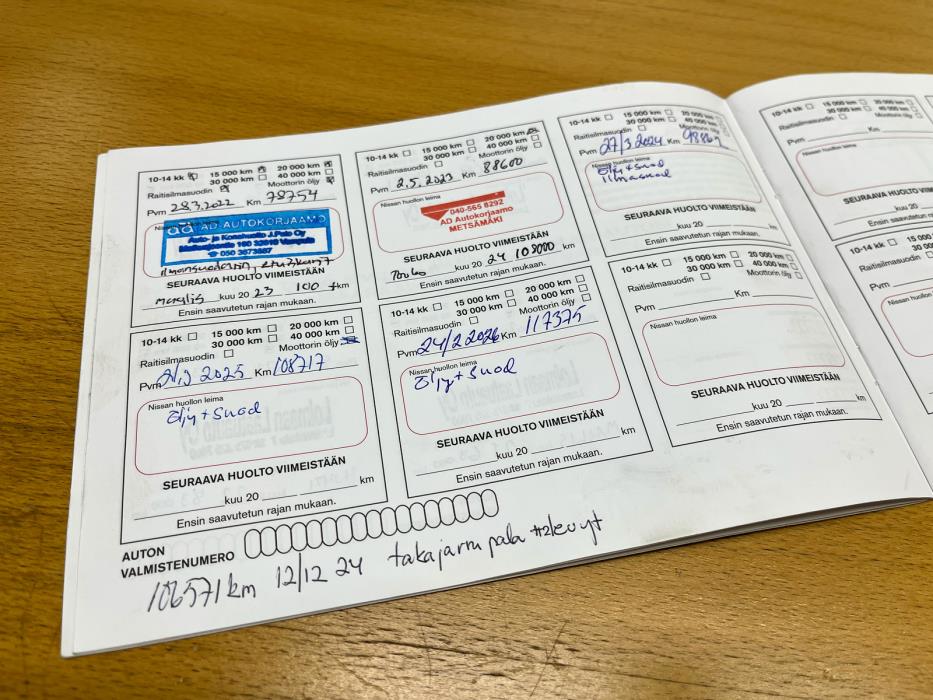 10-14 kk 15 000 km 20 000 km
30 000 km 40 000 km
Raitisilmasuodin Moottorin öljy
Pvm 28.3.2022 Km 78754
AD-AUTOKORJAAMO
Auto- ja Konehuolto J.Palo Oy
050 3073887
SEURAAVA HUOLTO VIIMEISTÄÄN
maalis kuu 20 23 100 km
Ensin saavutetun rajan mukaan.
10-14 kk 15 000 km 20 000 km
30 000 km 40 000 km
Raitisilmasuodin Moottorin öljy
Pvm 2.5.2023 Km 88600
Nissan huollon leima
040-565 8292
AD Autokorjaamo
METSÄMÄKI
SEURAAVA HUOLTO VIIMEISTÄÄN
kuu 20 24 108000 km
Ensin saavutetun rajan mukaan.
10-14 kk 15 000 km 20 000 km
30 000 km 40 000 km
Raitisilmasuodin Moottorin öljy
Pvm 27/3 2024 Km
Nissan huollon leima
Öljy + suod
ilmasuod
SEURAAVA HUOLTO VIIMEISTÄÄN
kuu 20 km
Ensin saavutetun rajan mukaan.
10-14 kk 15 000 km 20 000 km
30 000 km 40 000 km
Raitisilmasuodin Moottorin öljy
Pvm 2025 Km 108717
Nissan huollon leima
Öljy + Suod
SEURAAVA HUOLTO VIIMEISTÄÄN
kuu 20 km
Ensin saavutetun rajan mukaan.
10-14 kk 15 000 km 20 000 km
30 000 km 40 000 km
Raitisilmasuodin Moottorin öljy
Pvm 24/2 2026 Km 117375
Nissan huollon leima
Öljy + Suod
SEURAAVA HUOLTO VIIMEISTÄÄN
kuu 20 km
Ensin saavutetun rajan mukaan.
10-14 kk 15 000 km 20 000 km
30 000 km 40 000 km
Raitisilmasuodin Moottorin öljy
Pvm Km
Nissan huollon leima
SEURAAVA HUOLTO VIIMEISTÄÄN
kuu 20 km
Ensin saavutetun rajan mukaan.
10-14 kk 15 000 km
30 000
Raitisilmasuodin
Pvm Km
Nissan huollon leima
SEURAAVA HUOLTO
kuu 20
Ensin saavutetun
10-14 kk 15 000
30
Raitisilmasuodin
Pvm
Nissan huollon leima
SEURAAVA
Ensin
AUTON
VALMISTENUMERO
106571km 12/12 24 takajarru pala